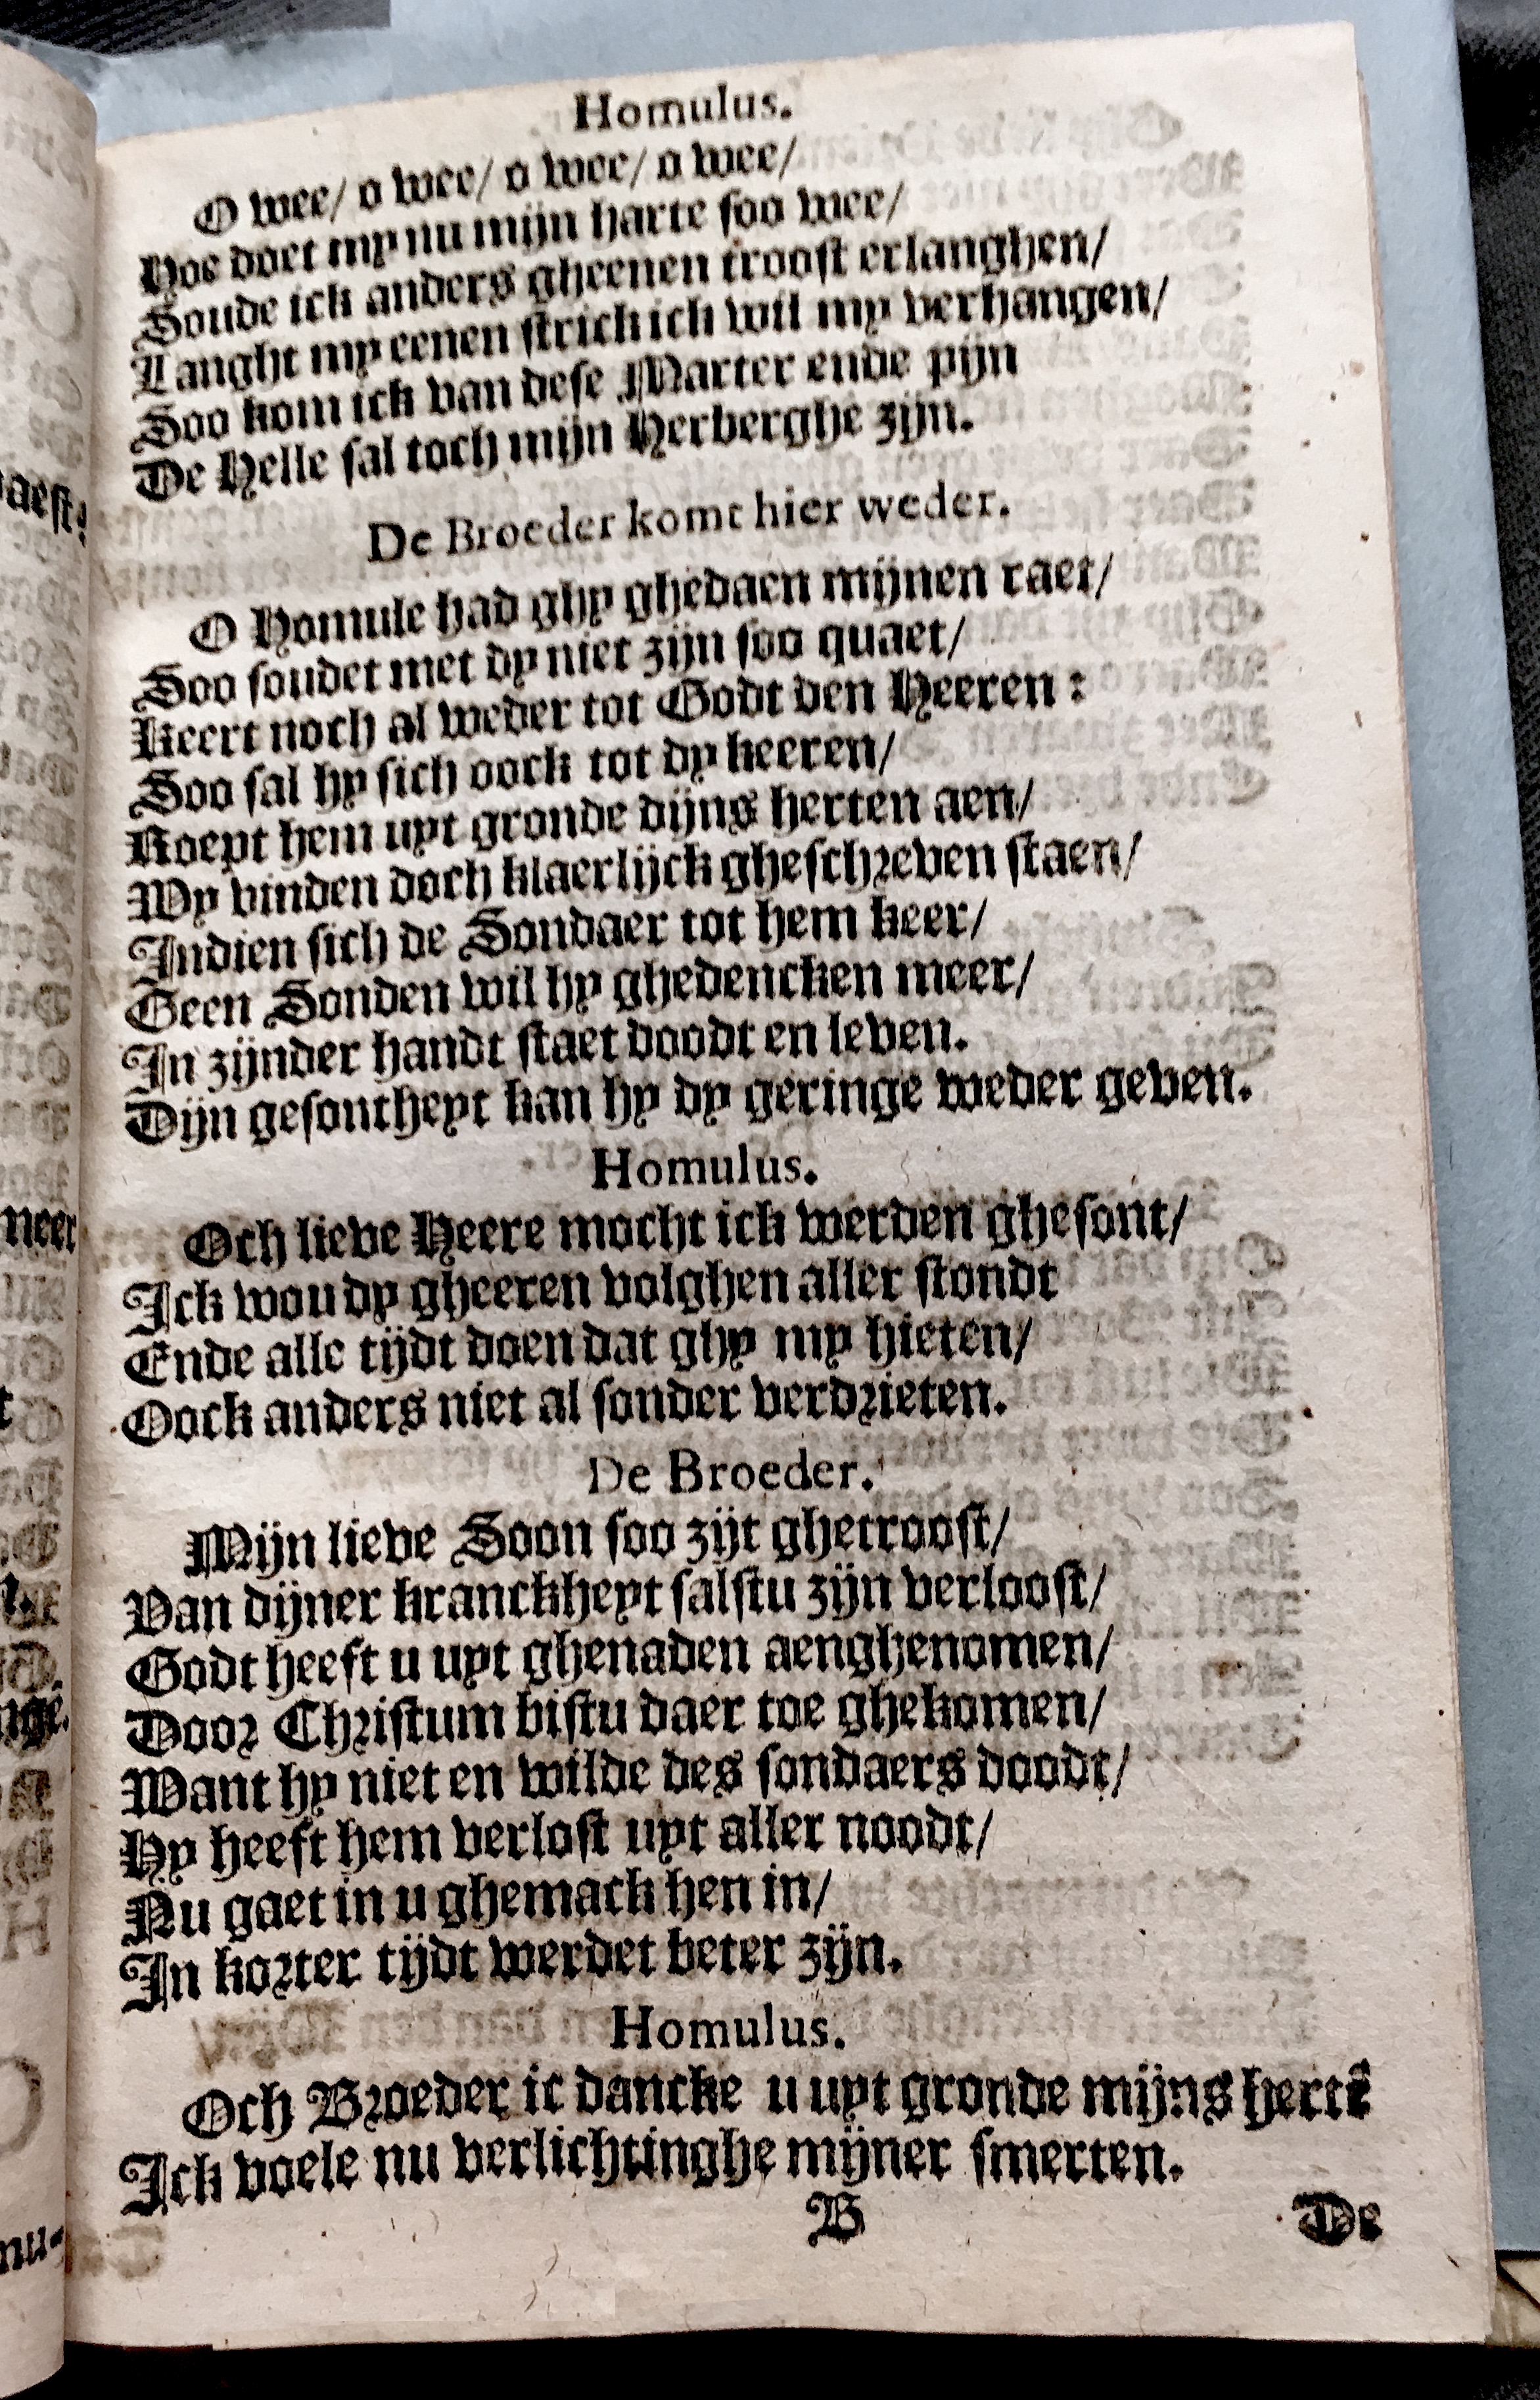 Homulus.
O wee/ o wee/ o wee/ o wee/
Hoe doet my nu mijn harte soo wee/
Soude ick anders gheenen troost erlanghen/
Langht my eenen strick ick wil my verhangen/
Soo kom ick van dese Marter ende pijn
De Helle sal toch mijn Herberghe zijn.
De Broeder komt hier weder.
O Homule had ghy ghedaen mijnen raet/
Soo soudet met dy niet zijn soo quaet/
Keert noch al weder tot Godt den Heeren :
Soo sal hy sich oock tot dy keeren/
Roept hem uyt gronde dijns herten aen/
Wy vinden doch klaerlijck gheschreven staen/
Indien sich de Sondaer tot hem keer/
Geen Sonden wil hy ghedencken meer/
In zijnder handt staet doodt en leven.
Dijn gesontheyt kan hy dy geringe weder geven.
Homulus.
Och lieve Heere mocht ick werden ghesont/
Ick wou dy gheeren volghen aller stondt
Ende alle tijdt doen dat ghy my hieten/
Oock anders niet al sonder verdrieten.
De Broeder.
Mijn lieve Soon soo zijt ghetroost/
Van dijner kranckheyt salstu zijn verloost/
Godt heeft u uyt ghenaden aenghenomen/
Door Christum bistu daer toe ghekomen/
Want hy niet en wilde des sondaers doodt/
Hy heeft hem verlost uyt aller noodt/
Nu gaet in u ghemack hen in/
In korter tijdt werdet beter zijn.
Homulus.
Och Broeder ic dancke u uyt gronde mijns hertē
Ick voele nu verlichtinghe mijner smerten.
B
De